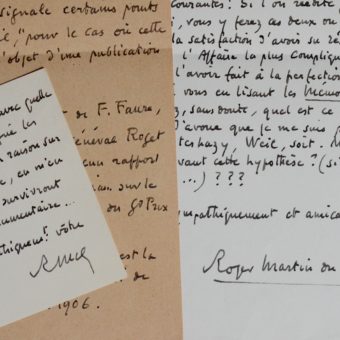 signale certains points
, "pour le cas où cette
l'objet d'une publication
de F. Faure,
Général Roget
un rapport
sur le
du Gd Prix
est la
de
1906.
avec quelle
les
raison sur
survivront
vôtre
RMG
courantes! Si l'on réédite
, vous y ferez ces deux ou
la satisfaction d'avoir su ré
l'Affaire la plus Compliqu
l'avoir fait à la perfection
vous en lisant les Memo
, sans doute, quel est ce
J'avoue que je me suis
terhazy, Weil, soit. M
avant cette hypothèse? (si
...) ? ? ?
sympathiquement et amica
Roger Martin du